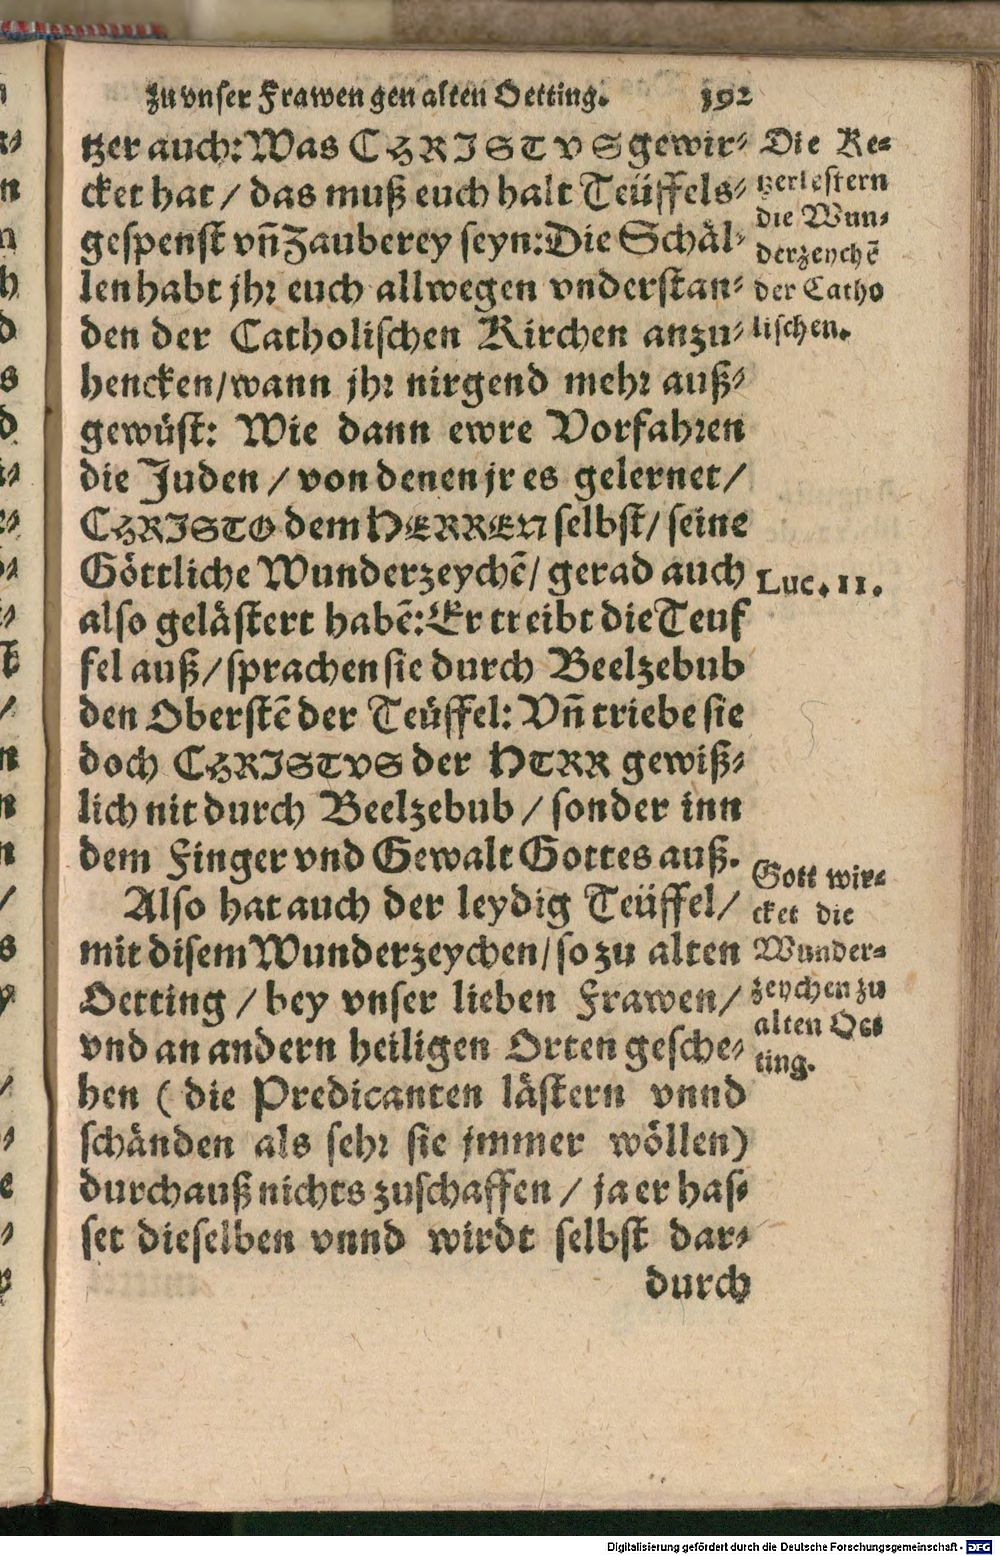 Zu vnser Frawen gen alten Oetting. 192
tzer auch: Was CHRISTVS gewir-
cket hat / das muß euch halt Teüffels-
gespenst vñ Zauberey seyn: Die Schäl-
len habt jhr euch allwegen vnderstan-
den der Catholischen Kirchen anzu-
hencken/wann jhr nirgend mehr auß-
gewüst: Wie dann ewre Vorfahren
die Juden / von denen jr es gelernet /
CHRISTO dem HERREN selbst / seine
Göttliche Wunderzeychẽ / gerad auch
also gelästert habẽ: Er treibt die Teuf
fel auß / sprachen sie durch Beelzebub
den Oberstẽ der Teüffel: Vñ triebe sie
doch CHRISTVS der HERR gewiß-
lich nit durch Beelzebub / sonder inn
dem Finger vnd Gewalt Gottes auß.
Also hat auch der leydig Teüffel /
mit disem Wunderzeychen / so zu alten
Oetting / bey vnser lieben Frawen /
vnd an andern heiligen Orten gesche-
hen ( die Predicanten lästern vnnd
schänden als sehr sie jmmer wöllen)
durchauß nichts zuschaffen / ja er has-
set dieselben vnnd wirdt selbst dar-
durch
Die Ke-
tzer lestern
die Wun-
derzeychẽ
der Catho
lischen.
Luc. 11.
Gott wir-
cket die
Wunder-
zeychen zu
alten Oe-
ting.
Digitalisierung gefördert durch die Deutsche Forschungsgemeinschaft - DFG